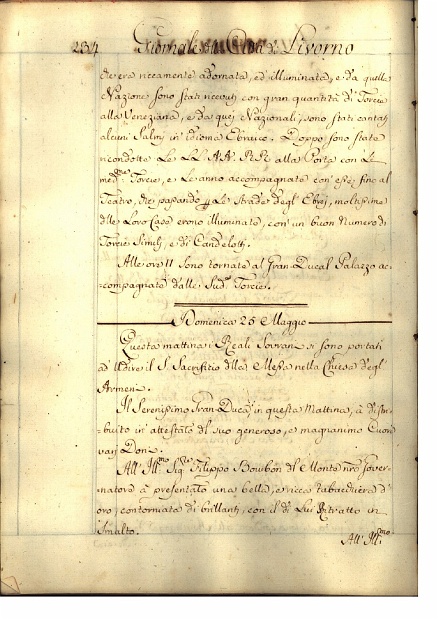 234 Giornale di Livorno
che era riccamente adornata, ed illuminata, e da quella
Nazione sono stati ricevuti con gran quantità di Torcie
alla Veneziana, e da quej Nazionali, sono stati cantati
alcuni Salmj in idioma Ebraico. Doppo sono stata
ricondotte Le LL. AA. RR. alla Porta con Le
med.me Torcie, e Le anno accompagnate con esse, fino al
Teatro, che passando Le Strade degl' Ebrej, moltissime
delle Loro Case erono illuminate, con un buon Numero di
Torcie Similj, e di Candelotti.
Alle ore 11 Sono tornate al Gran-Ducal Palazzo ac=
=compagnate dalle Sud.e Torcie.
Domenica 25 Maggio
Questa mattina i Reali Sovrani si sono portati
ad Udire il S. Sacrifitio della Messa nella Chiesa degl'
Armeni.
Il Serenissimo Gran-Duca in questa Mattina, à distri=
=buito in attestato del suo generoso, e magnanimo Cuore
varj Doni.
All' Ill.mo Sig.re Filippo Bourbon del Monte nro Gover=
=natore à presentato una bella, e ricca tabacchiera d'
oro, contorniata di brillanti, con il di Lui Ritratto in
Smalto.
All' Ill.mo